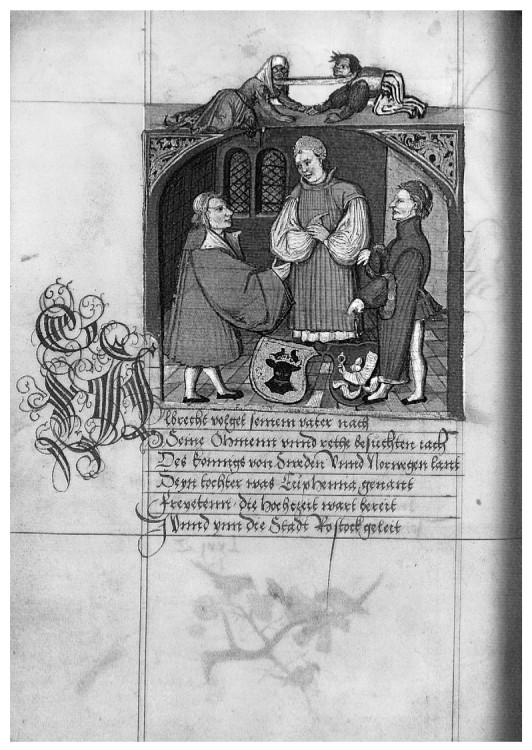 Albrecht volget seinem vater nach
Seine Ohmenn vnnd rethe besuchten iach
Des konings von Sweden Vnnd Norwegen lant
Deyn tochter was Euphemia genant
Freyetenn die Hochzeit wart bereit
Vnnd ynn die Stadt Rostock geleit